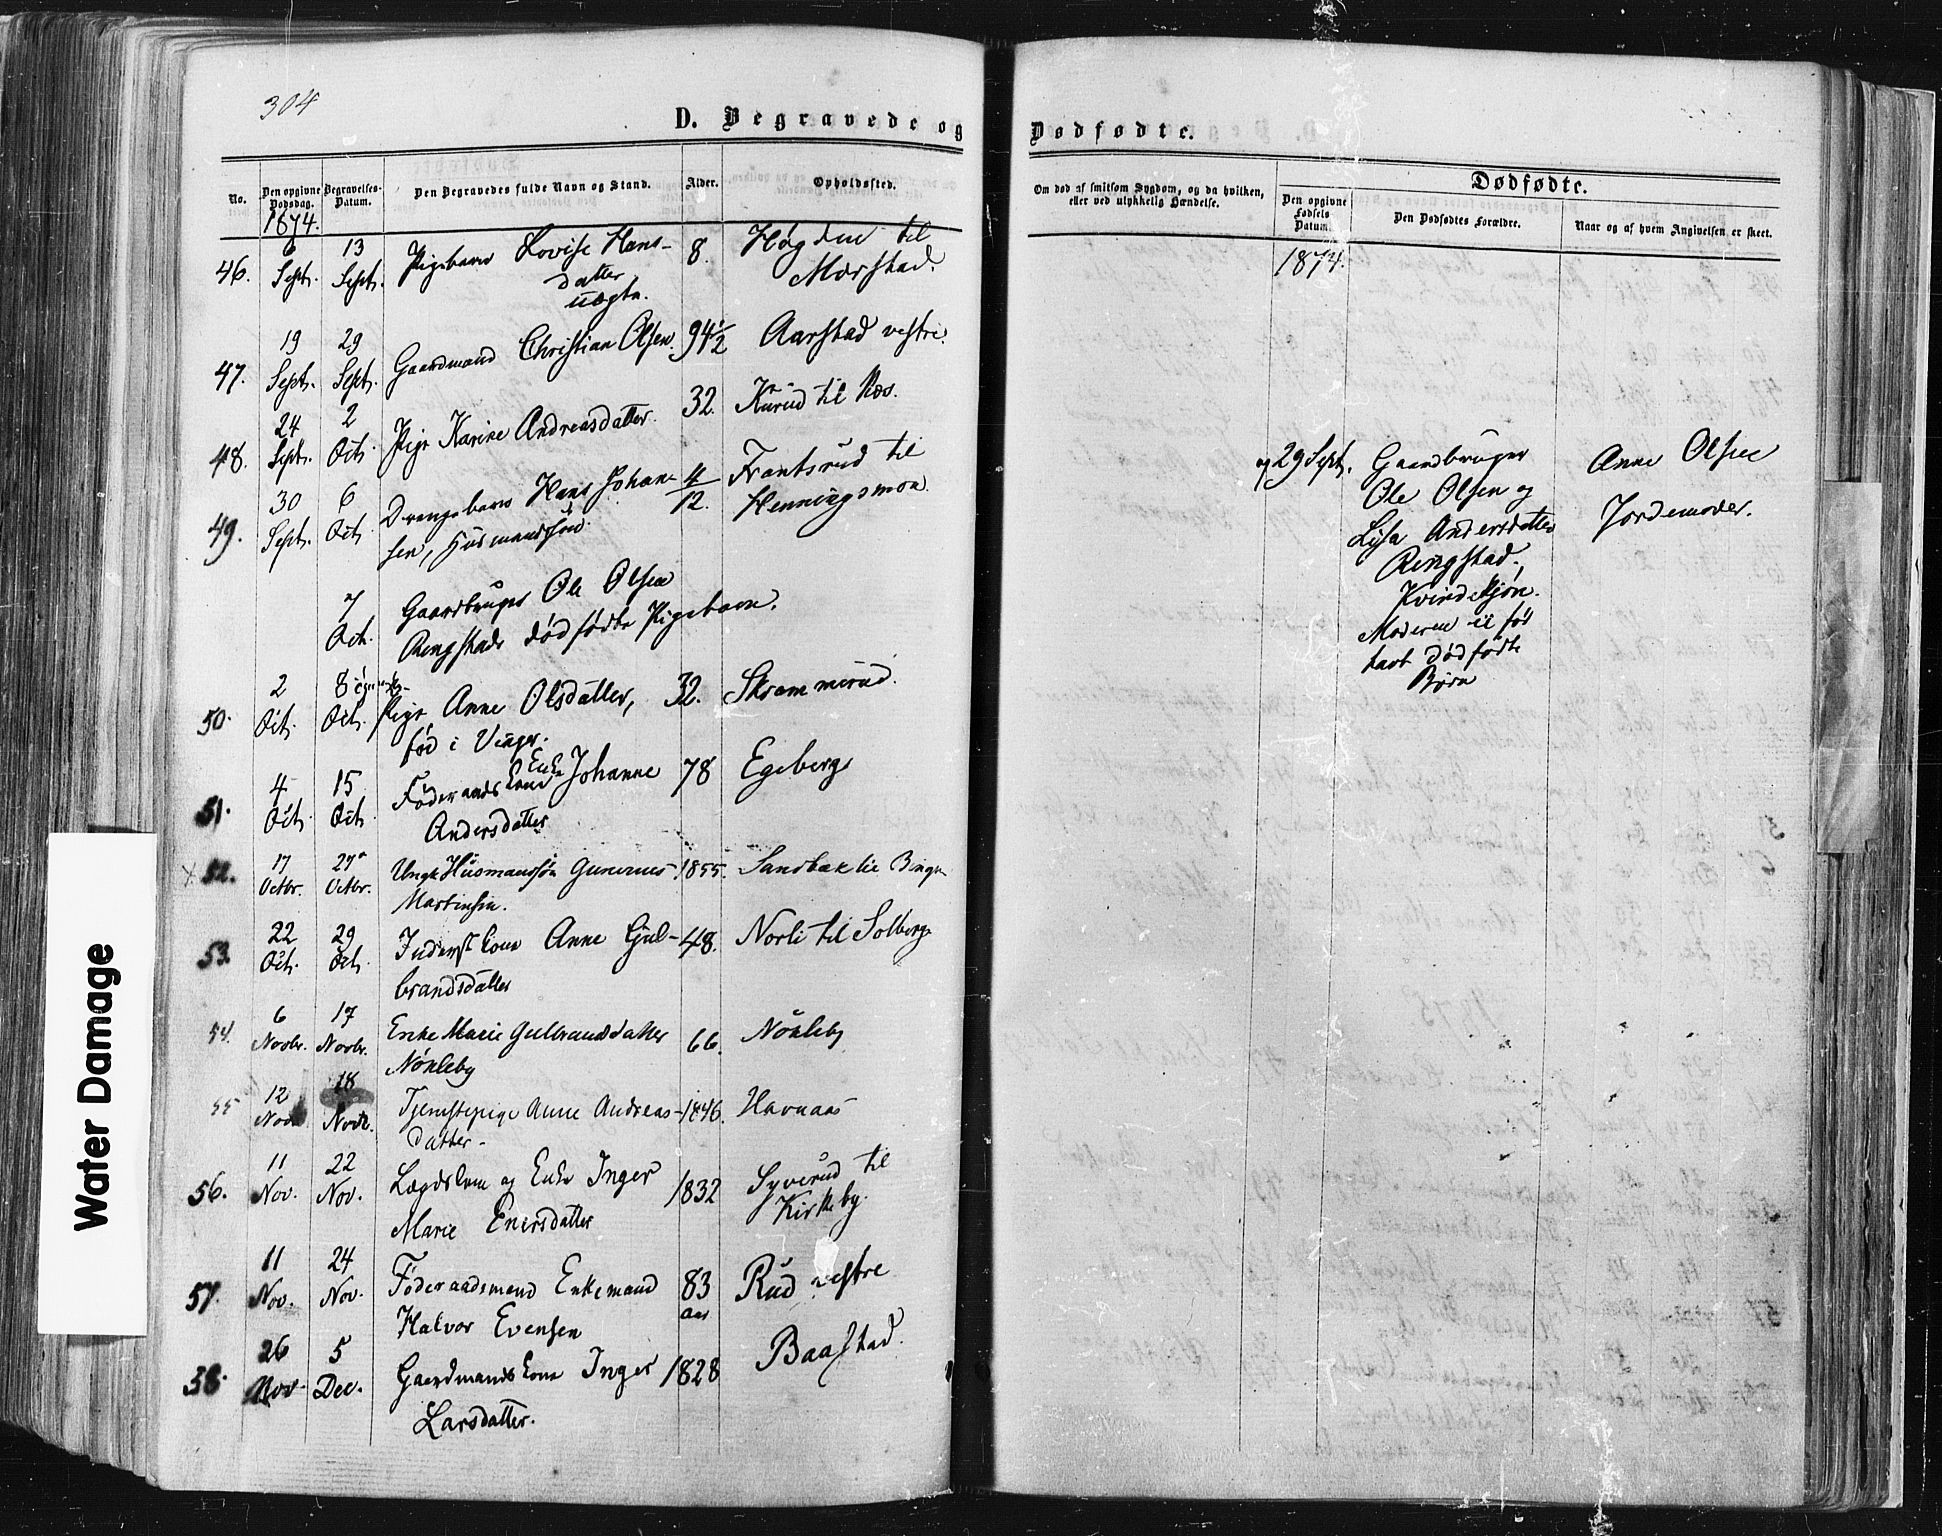 304
D. Begravede og
No.
Den opgivne Dødsdag.
Begravelses-Datum.
Den Begravedes fulde Navn og Stand.
Alder.
Opholdssted.
1874.
46. 6 Sept. 13 Sept. Pigebarn Lovise Hans- 8. Høgden til
datter Mørstad.
uægte.
47. 19 Sept. 29 Sept. Gaardmand Christian Olsen. 94 1/2 Aarstad vestre.
48. 24 Sept. 2 Oct. Pige Karine Andreasdatter. 32. Kurud til Næs.
49. 30 Sept. 6 Oct. Drengebarn Hans Johan- 4/12. Frantsrud til
sen, Husmandssøn. Henningsmoen.
7 Oct. Gaardbruger Ole Olsen
Ringstads dødfødte Pigebarn.
50. 2 Oct. 8 Oct. Pige Anne Olsdatter, 32. Skrammerud.
fød i Vinger.
51. 4 Oct. 15 Oct. Føderaadskone Enke Johanne 78 Egeberg
Andersdatter
52. 17 Octbr. 27 Octbr. Ungk. Husmandssøn Gunerius 1855. Sandbæk til
Martinsen.
53. 22 Oct. 29 Oct. Inderstkone Anne Gul- 48. Norli til Solberg
brandsdatter
54. 6 Novbr. 17 Novbr. Enke Marie Gulbrandsdatter 66. Nökleby
Nökleby
55 12 Novbr. 18 Novbr. Tjenestepige Anne Andreas- 1846. Havnaas
datter -
56. 11 Nov. 22 Nov. Lægdslem og Enke Inger 1832 Syverud til
Marie Enersdatter Kirkeby.
57. 11 Nov. 24 Nov. Føderaadsmand Enkemand 83 aar Rud vestre
Halvor Evensen
58. 26 Nov. 5 Dec. Gaardmandskone Inger 1828 Baastad.
Larsdatter.
Dødfødte.
Om død af smitsom Sygdom, og da hvilken,
eller ved ulykkelig Hændelse.
Dødfødte.
Den opgivne Fødsels Datum.
Den Dødfødtes Forældre.
Naar og af hvem Angivelsen er skeet.
1874.
29 Sept. Gaardbruger Anne Olsen
Ole Olsen og Jordemoder.
Lisa Andersdatter
Ringstad,
Kvindekjøn.
Moderen ei før
havt dødfødte
Børn
Water Damage